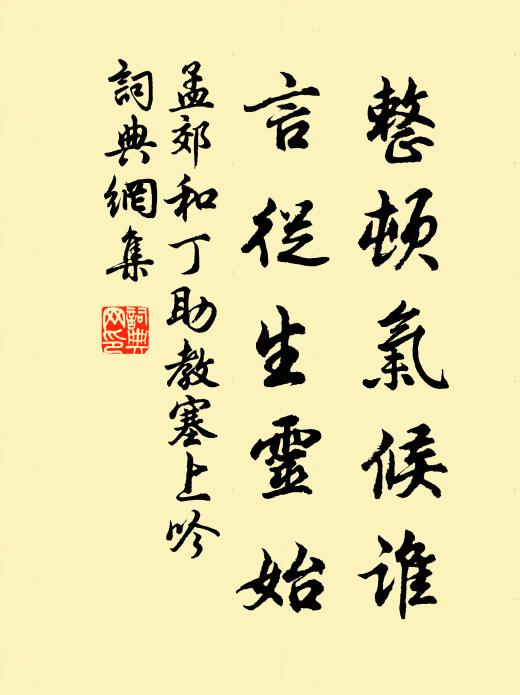 整頓氣候誰
言從生靈始
孟郊和丁助教塞上吟
詞典網集
詞典网印